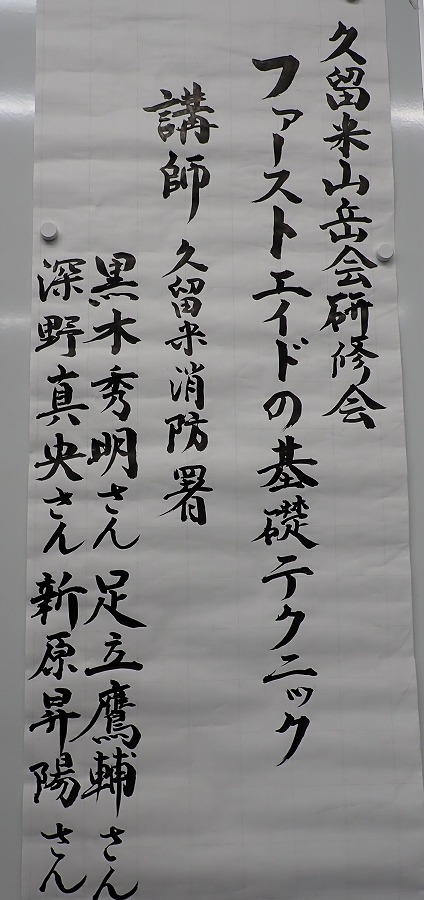 久留米山岳会研修会
ファーストエイドの基礎テクニック
講師 久留米消防署
黒木秀明さん 足立鷹輔さん
深野真央さん 新原昇陽さん